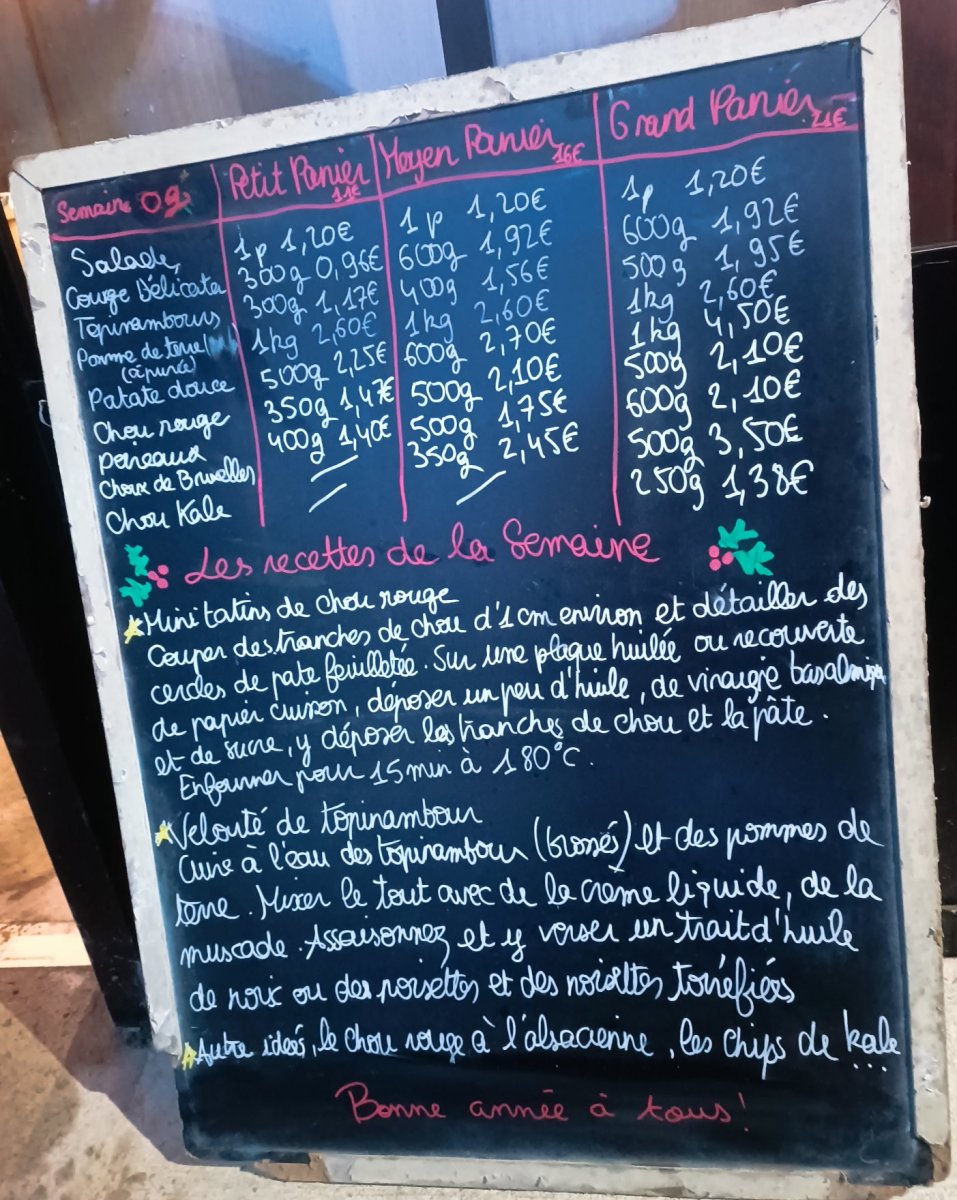 Semaine 09 Petit Panier 11€ Moyen Panier 16€ Grand Panier 21€
Salade 1p 1,20€ 1p 1,20€ 1p 1,20€
Courge Délicata 300g 0,96€ 600g 1,92€ 600g 1,92€
Topinambours 300g 1,17€ 400g 1,56€ 500g 1,95€
Pomme de terre 1kg 2,60€ 1kg 2,60€ 1kg 2,60€
(à purée)
Patate douce 500g 2,25€ 600g 2,70€ 1kg 4,50€
Chou rouge 350g 1,47€ 500g 2,10€ 500g 2,10€
Poireaux 400g 1,40€ 500g 1,75€ 600g 2,10€
Choux de Bruxelles 350g 2,45€ 500g 3,50€
Chou Kale 250g 1,38€
Les recettes de la Semaine
Mini tatins de chou rouge
Couper des tranches de chou d'1cm environ et détailler des
cercles de pate feuilletée. Sur une plaque huilée ou recouverte
de papier cuisson, déposer un peu d'huile, de vinaigre
et de sucre, y déposer les tranches de chou et la pâte.
Enfourner pour 15min à 180°C.
Velouté de topinambour
Cuire à l'eau des topinambour (brossés) et des pommes de
terre. Mixer le tout avec de la crème liquide, de la
muscade. Assaisonnez et y verser un trait d'huile
de noix ou des noisettes et des noisettes torréfiées
Autre idées, le chou rouge à l'alsacienne, les chips de kale
...
Bonne année à tous!